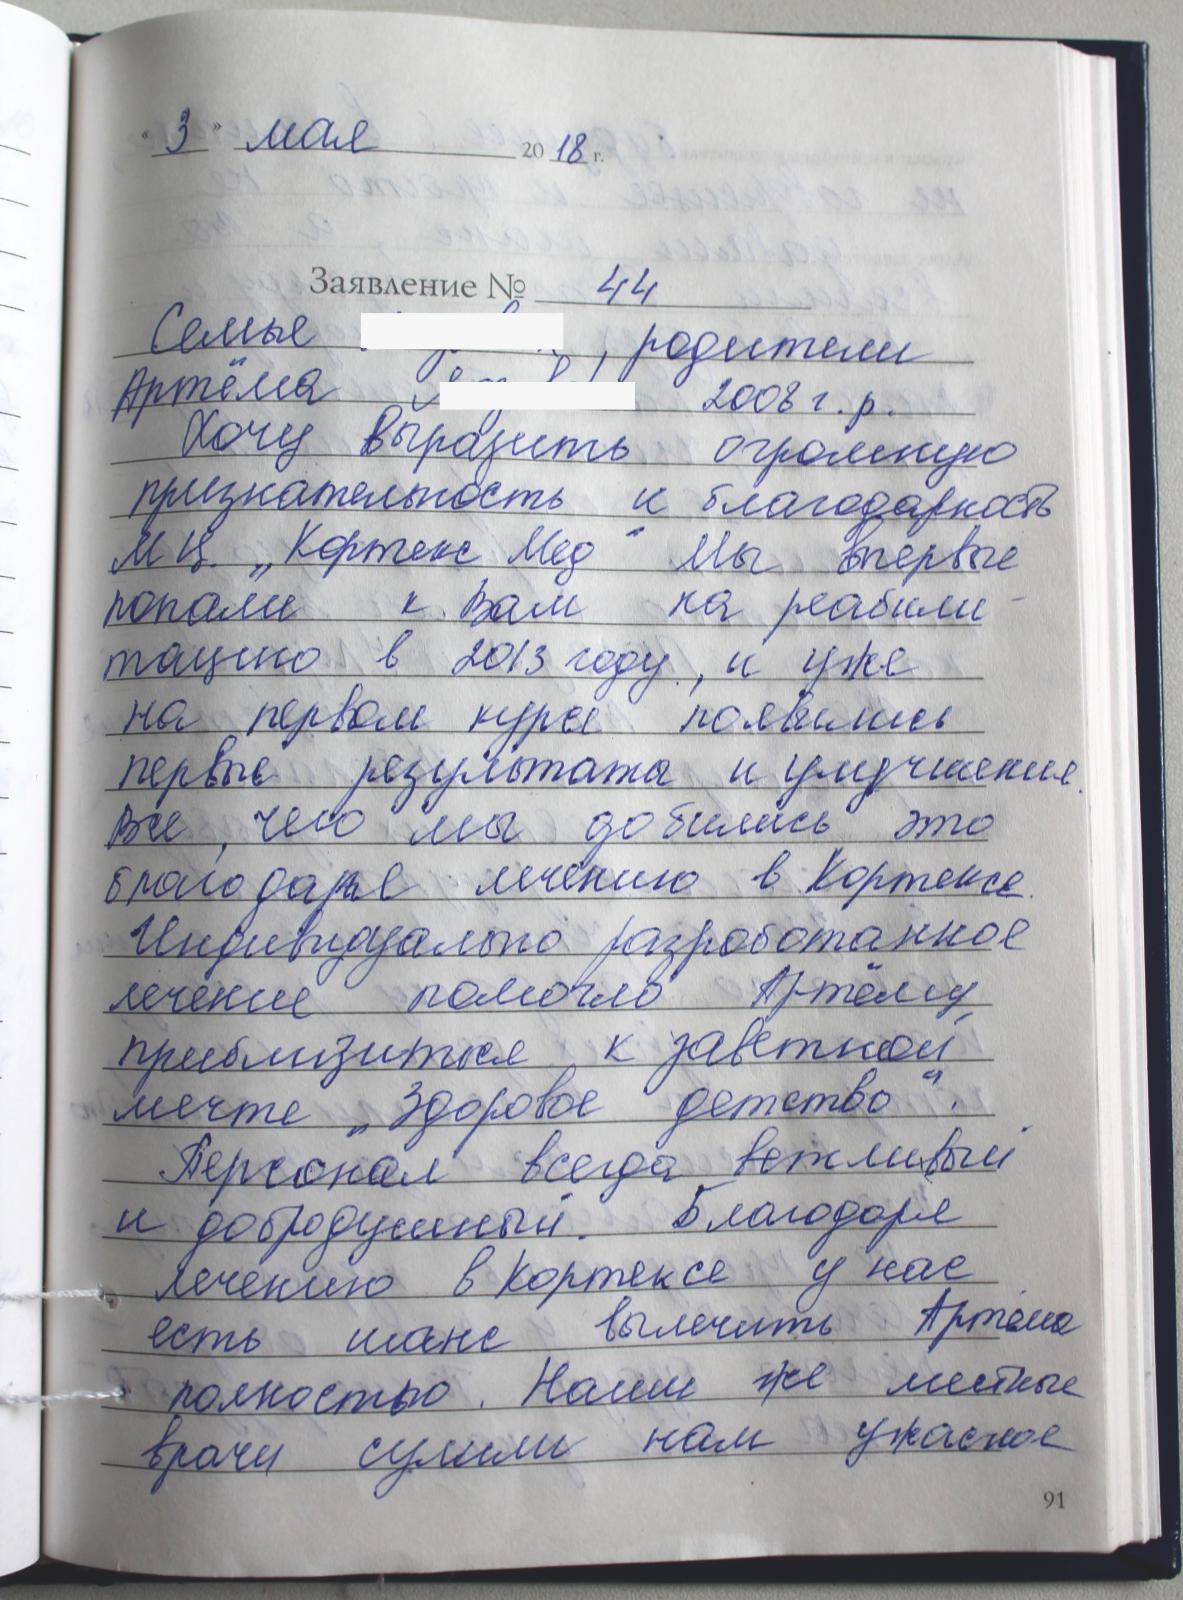 "3" мая 2018 г.
Заявление № 44
Семье , родители
Артёма 2008 г. р.
Хочу выразить огромную
признательность и благодарность
МЦ. „Кортекс Мед" Мы впервые
попали к Вам на реабили-
тацию в 2013 году, и уже
на первом курсе появились
первые результаты и улучшения.
Все, чего мы добились это
благодаря лечению в Кортексе.
Индивидуально разроботанное
лечение помогло Артёму
приблизиться к заветной
мечте „Здоровое детство".
Персонал всегда вежливый
и добродушный. Благодаря
лечению в Кортексе у нас
есть шанс вылечить Артёма
полностью. Наши же местные
врачи сулили нам ужасное
91